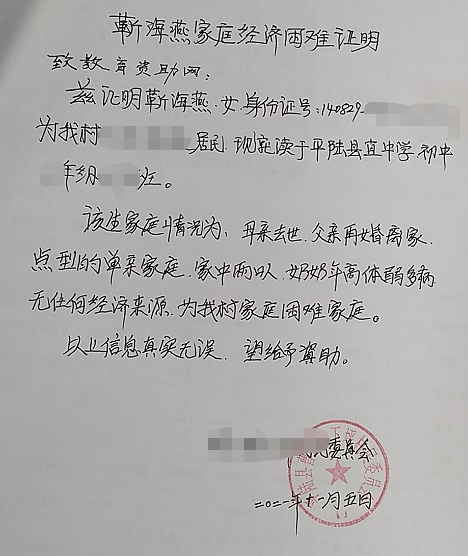 靳海燕家庭经济困难证明
致教育资助网：
兹证明靳海燕.女.身份证号:140829
为我村 居民.现就读于平陆县直中学.初中
年级 班。
该生家庭情况为，母亲去世.父亲再婚离家.
点型的单亲家庭.家中两口人.奶奶年高体弱多病
无任何经济来源.为我村家庭困难家庭。
以上信息真实无误.望给予资助。
民委员会
平陆县 委员会
二〇二一年十一月五日